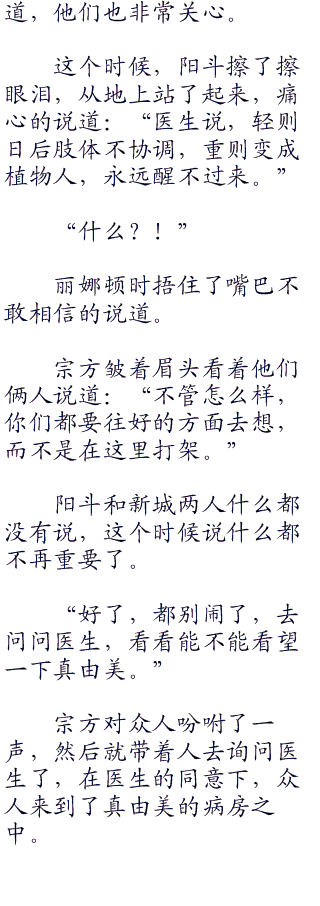 道，他们也非常关心。
这个时候，阳斗擦了擦
眼泪，从地上站了起来，痛
心的说道：“医生说，轻则
日后肢体不协调，重则变成
植物人，永远醒不过来。”
“什么？！”
丽娜顿时捂住了嘴巴不
敢相信的说道。
宗方皱着眉头看着他们
俩人说道：“不管怎么样，
你们都要往好的方面去想，
而不是在这里打架。”
阳斗和新城两人什么都
没有说，这个时候说什么都
不再重要了。
“好了，都别闹了，去
问问医生，看看能不能看望
一下真由美。”
宗方对众人吩咐了一
声，然后就带着人去询问医
生了，在医生的同意下，众
人来到了真由美的病房之
中。